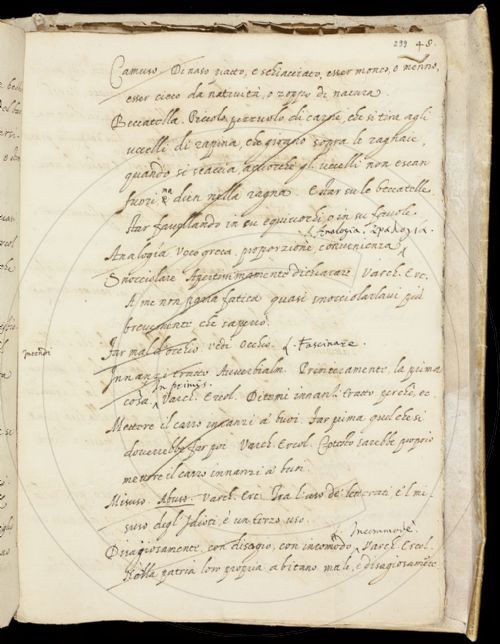 239 48.
Camuso. Di naso piatto, e schiacciato, esser monco, o menno,
esser cieco da natività, o zoppo di natura.
Beccatella. Piccolo pezzuolo di carne, che si tira agli
uccelli di rapina, che girano sopra le ragnaie,
quando si scaccia, acciocchè gl'uccelli non escan
fuori ma dien nella ragna. E star su le beccatelle
star favellando in su equivochi o in su favole.
Analogia.
Analogia. Voce greca. proporzione, convenienza
Snocciolare. Apertissimamente dichiarare. Varch. Erc.
A me non parrà fatica quasi snocciolarlavi più
brevemente che saperrò.
Far mal d'occhio. vedi Occhio. Fascinare.
intendi
Innanzi tratto. Avverbialm. Primieramente, la prima
In primis.
cosa. Varch. Ercol. Ditemi innanzi tratto, perchè, ec.
Mettere il carro innanzi a' buoi. Far prima quel che si
doverrebbe far poi. Varch. Ercol. Cotesto sarebbe proprio
mettere il carro innanzi a' buoi.
Misuso. Abuso. Varch. Erc. Tra l'uso de' letterati, e 'l mi-
suso degl'Idioti, è un terzo uso.
Incommode.
Disagiosamente, con disagio, con incomodo. Varch. Ercol.
Nella patria loro propria abitano male, e disagiosamente